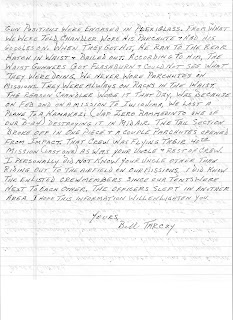 GUN POSITIONS WERE ENCASED IN PLEXIGLASS. FROM WHAT
WE WERE TOLD CHANDLER WORE HIS PARCHUTE & HAD HIS
GOGGLES ON. WHEN THEY GOT HIT, HE RAN TO THE REAR
HATCH IN WAIST & BAILED OUT. ACCORDING TO HIM, THE
WAIST GUNNERS GOT FLASHBURN & COULD NOT SEE WHAT
THEY WERE DOING. WE NEVER WORE PARCHUTES ON
MISSIONS. THEY WERE ALWAYS ON RACKS IN THE WAIST.
THE REASON CHANDLER WORE IT THAT DAY, WAS BECAUSE
ON FEB 2ND ON A MISSION TO IWO JIMA, WE LOST A
PLANE TO A KAMAKAZI (JAP ZERO RAMMED INTO ONE OF
OUR B-24) DESTROYING IT IN MID AIR. THE TAIL SECTION
BROKE OFF IN ONE PIECE & A COUPLE PARACHUTES OPENED
FROM IMPACT. THAT CREW WAS FLYING THEIR 40TH
MISSION (LAST ONE) AS WAS YOUR UNCLE & REST OF CREW.
I PERSONALLY DID NOT KNOW YOUR UNCLE OTHER THAN
RIDING OUT TO THE AIRFIELD ON OUR MISSIONS. I DID KNOW
THE ENLISTED CREWMEMBERS SINCE OUR TENTS WERE
NEXT TO EACH OTHER. THE OFFICERS SLEPT IN ANOTHER
AREA. I HOPE THIS INFORMATION WILL ENLIGHTEN YOU.
YOURS,
BILL